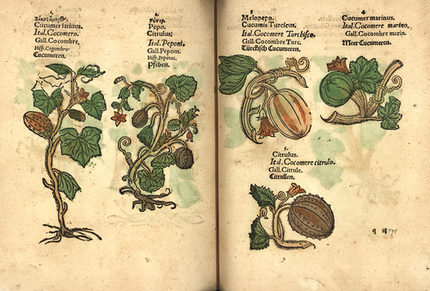 Cucumer sativus.
Ital. Cocomero.
Gall. Cocombre.
Hisp. Cogombro.
Cucumeren.
Pepo.
Citrulus.
Ital. Peponi.
Gall. Pepon.
Hisp. Pepinos.
Pfeben.
Melopepo.
Cucumis Turcicus.
Ital. Cocomere Turchesco.
Gall. Cocombre Turc.
Türckisch Cucumeren.
Cucumer marinus.
Ital. Cocomere marino.
Gall. Cocombre marin.
Meer Cucumeren.
Citrulus.
Ital. Cocomere citrulo.
Gall. Citrule.
Citrullen.